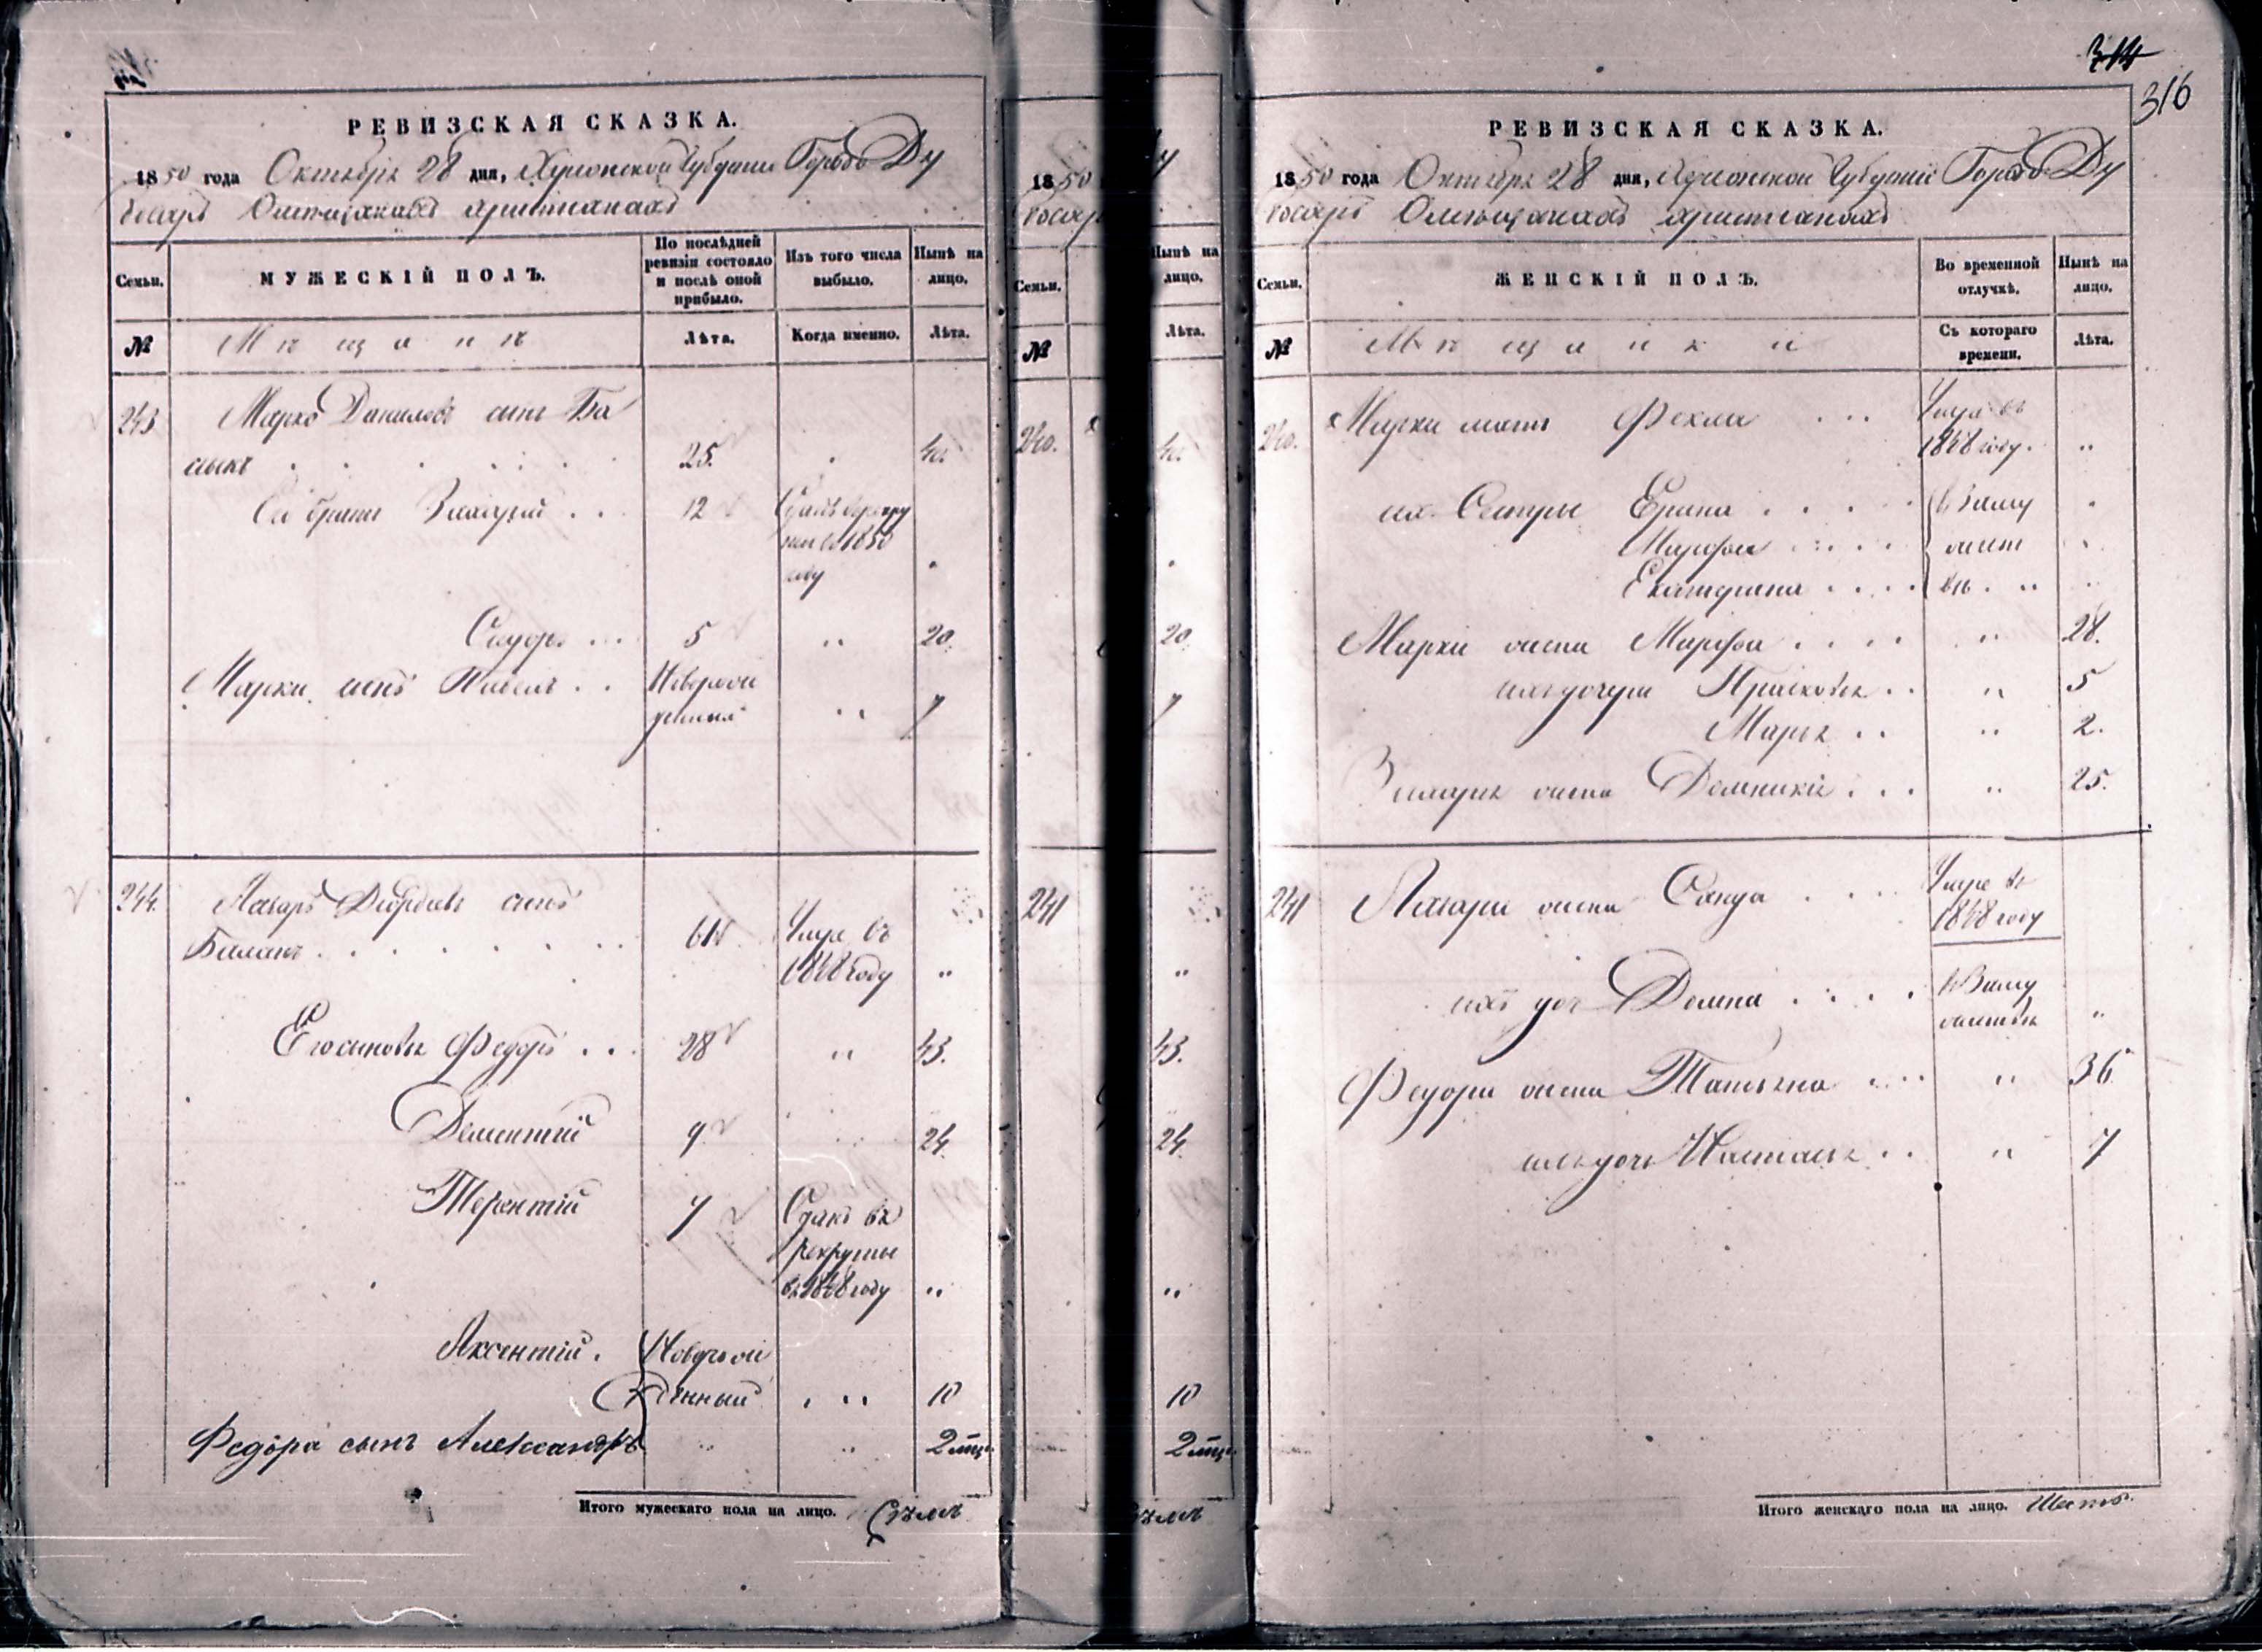 РЕВИЗСКАЯ СКАЗКА.
1850 года Октября 28 дня, Херсонской Губернии Городъ Ду
босаръ О мещанахъ христианахъ
Семьи. МУЖЕСКІЙ ПОЛЪ. По послѣдней ревизіи состояло и послѣ оной прибыло. Изъ того числа выбыло. Нынѣ на лицо.
№ Мѣщанѣ Лѣта. Когда именно. Лѣта.
243 Марко Даниловъ сынъ Ба
25. 40
Его братья Захарий . . . 12 Сданъ въ рекру
ты въ 1850
году
Сидоръ ... 5 " 20.
Марки сынъ Павелъ . . Новорож
денный " 7
244. Лазарь Сынъ
Баланъ . . . . . . 61 Умре въ
1848 году "
Его сыновья Федоръ . . . 28 " 43.
Дементий 9 24.
Терентій 7 Сданъ въ
рекруты
въ 1848 году "
Аксентій . Новорож
денный " 10
Федора сынъ Александръ " " 2 мѣц.
Итого мужескаго пола на лицо. Семь
1850
Нынѣ на
Семьи. лицо.
№ Лѣта.
240. 40
20.
7
241
"
43.
24.
"
10
2 мѣц.
314
316
РЕВИЗСКАЯ СКАЗКА.
1850 года Октября 28 дня, Херсонской Губернии Городъ Ду
босаръ О мещанахъ христианахъ
Семьи. ЖЕНСКІЙ ПОЛЪ. Во временной отлучкѣ. Нынѣ на лицо.
№ Мѣщанки Съ котораго времени. Лѣта.
240. Марки мать Фекла . . . Умре въ
1848 году. "
их Сестры Ерина . . . . въ Заму
Марфа . . . . жест
Екатерина . . . . вѣ. "
Марки жена Марфа . . . . " 28.
ихъ дочери Прасковья . . " 5
Марья . . " 2.
Захарія жена Домникія . . . " 25.
241 Лазаря жена Санда . . . Умре въ
1848 году
ихъ доч Домна . . . . въ Заму
жествѣ "
Федора жена Татьяна . . . " 36
ихъ дочь Наталья . . " 7
Итого женскаго пола на лицо. Шесть.